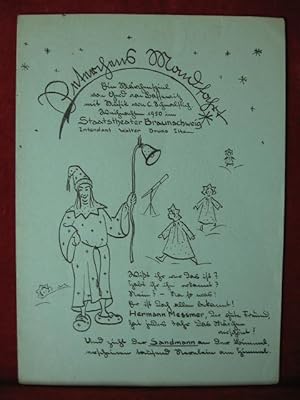 Peterchens Mondfahrt
Ein Märchenspiel
von Gerd von Bassewitz
mit Musik von C. Schmalstich
Weihnachten 1950 im
Staatstheater Braunschweig
Intendant Walter Bruno Iltz
Wißt ihr wer das ist?
Habt ihr ihn erkannt?
Nein? - Na so was!
Er ist doch allen bekannt!
Hermann Messmer, der
hat jedes Jahr das Märchen
Und zieht der Sandmann an der Himmel,
tausend Sternlein am Himmel.